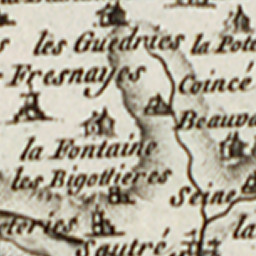 les Guedries
la Pote
Fresnayes
Coincé
Beauvo
la Fontaine
les Bigottières
Seine
teries
la
Sautré